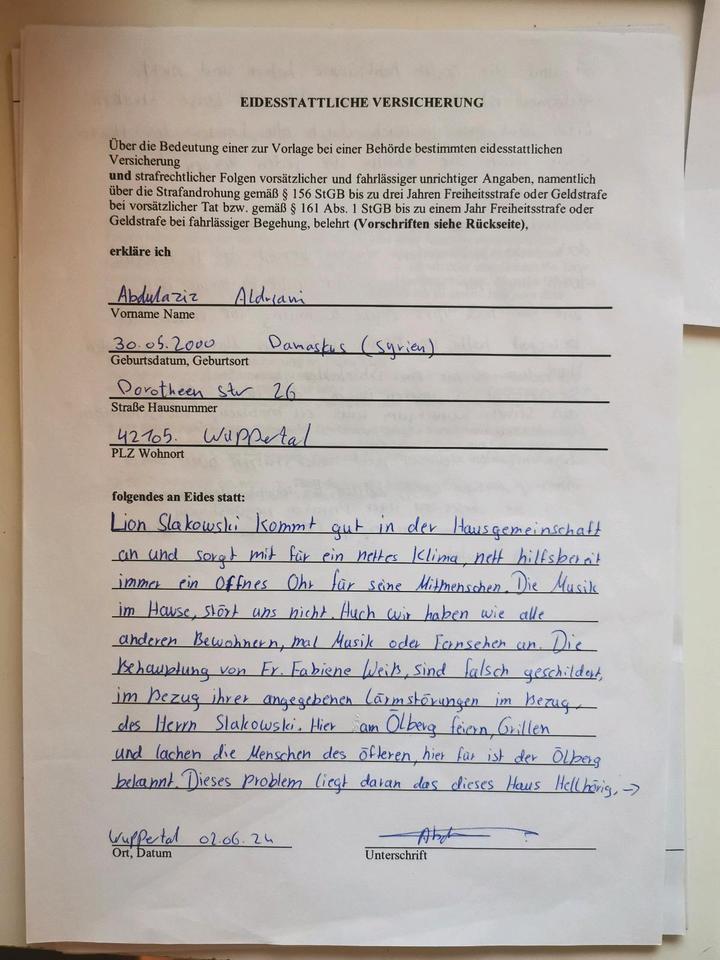 EIDESSTATTLICHE VERSICHERUNG
Über die Bedeutung einer zur Vorlage bei einer Behörde bestimmten eidesstattlichen
Versicherung
und strafrechtlicher Folgen vorsätzlicher und fahrlässiger unrichtiger Angaben, namentlich
über die Strafandrohung gemäß § 156 StGB bis zu drei Jahren Freiheitsstrafe oder Geldstrafe
bei vorsätzlicher Tat bzw. gemäß § 161 Abs. 1 StGB bis zu einem Jahr Freiheitsstrafe oder
Geldstrafe bei fahrlässiger Begehung, belehrt (Vorschriften siehe Rückseite),
erkläre ich
Abdulaziz Aldriani
Vorname Name
30.05.2000 Damaskus (Syrien)
Geburtsdatum, Geburtsort
Dorotheen str 26
Straße Hausnummer
42105. Wuppertal
PLZ Wohnort
folgendes an Eides statt:
Lion Slakowski kommt gut in der Hausgemeinschaft
an und sorgt mit für ein nettes Klima, nett hilfsbereit
immer ein offnes Ohr für seine Mitmenschen. Die Musik
im Hause, stört uns nicht. Auch wir haben wie alle
anderen Bewohnern, mal Musik oder Fernsehen an. Die
Behauptung von Fr. Fabiene Weiß, sind falsch geschildert,
im Bezug ihrer angegebenen Lärmstörungen im Bezug,
des Herrn Slakowski. Hier am Ölberg feiern, Grillen
und lachen die Menschen des öfteren, hier für ist der Ölberg
bekannt. Dieses Problem liegt daran das dieses Haus Hellhörig, →
Wuppertal 02.06.24
Ort, Datum
Unterschrift